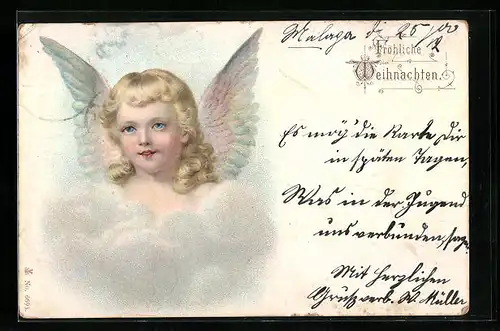 Malaga d. 25/00
Fröhliche
Weihnachten.
Es mög' die Karte Dir
in späten Tagen,
Was in der Jugend
uns verbunden, sagen.
Mit herzlichen
Grussverb. W. Müller
№ 6693.